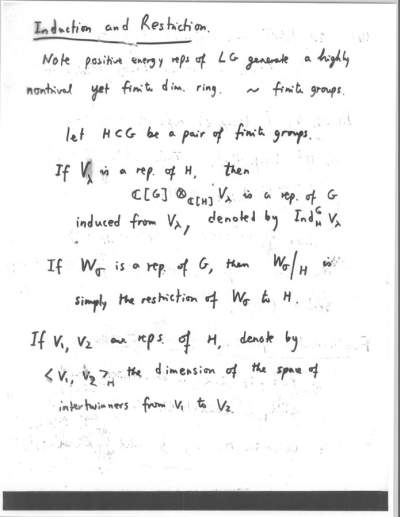 Induction and Restriction.
Note positive energy reps of LG generate a highly
nontrival yet finite dim. ring. ~ finite groups.
let H ⊂ G be a pair of finite groups.
If V_λ is a rep. of H, then
ℂ[G] ⊗_ℂ[H] V_λ is a rep. of G
induced from V_λ, denoted by Ind_H^G V_λ
If W_σ is a rep. of G, then W_σ/H is
simply the restriction of W_σ to H.
If V₁, V₂ are reps. of H, denote by
<V₁, V₂>_H the dimension of the space of
intertwinners from V₁ to V₂.